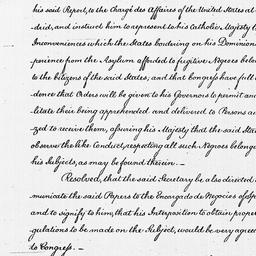 his said Report, to the Chargé des Affaires of the United States at
drid, and instruct him to represent to his Catholic Majesty
Inconveniences which the States bordering on his Dominions
perience from the Asylum afforded to fugitive Negroes belong
to the Citizens of the said States; and that Congress have full
dence that Orders will be given to his Governors to permit and
litate their being apprehended and delivered to Persons au
zed to receive them, assuring his Majesty that the said Stat
observe the like Conduct, respecting all such Negroes belong
his Subjects, as may be found therein. —
Resolved, that the said Secretary be also directed
municate the said Papers to the Encargado de Negocios of Sp
and to signify to him, that his Interposition to obtain proper
gulations to be made on the Subject, would be very agree
to Congress. —